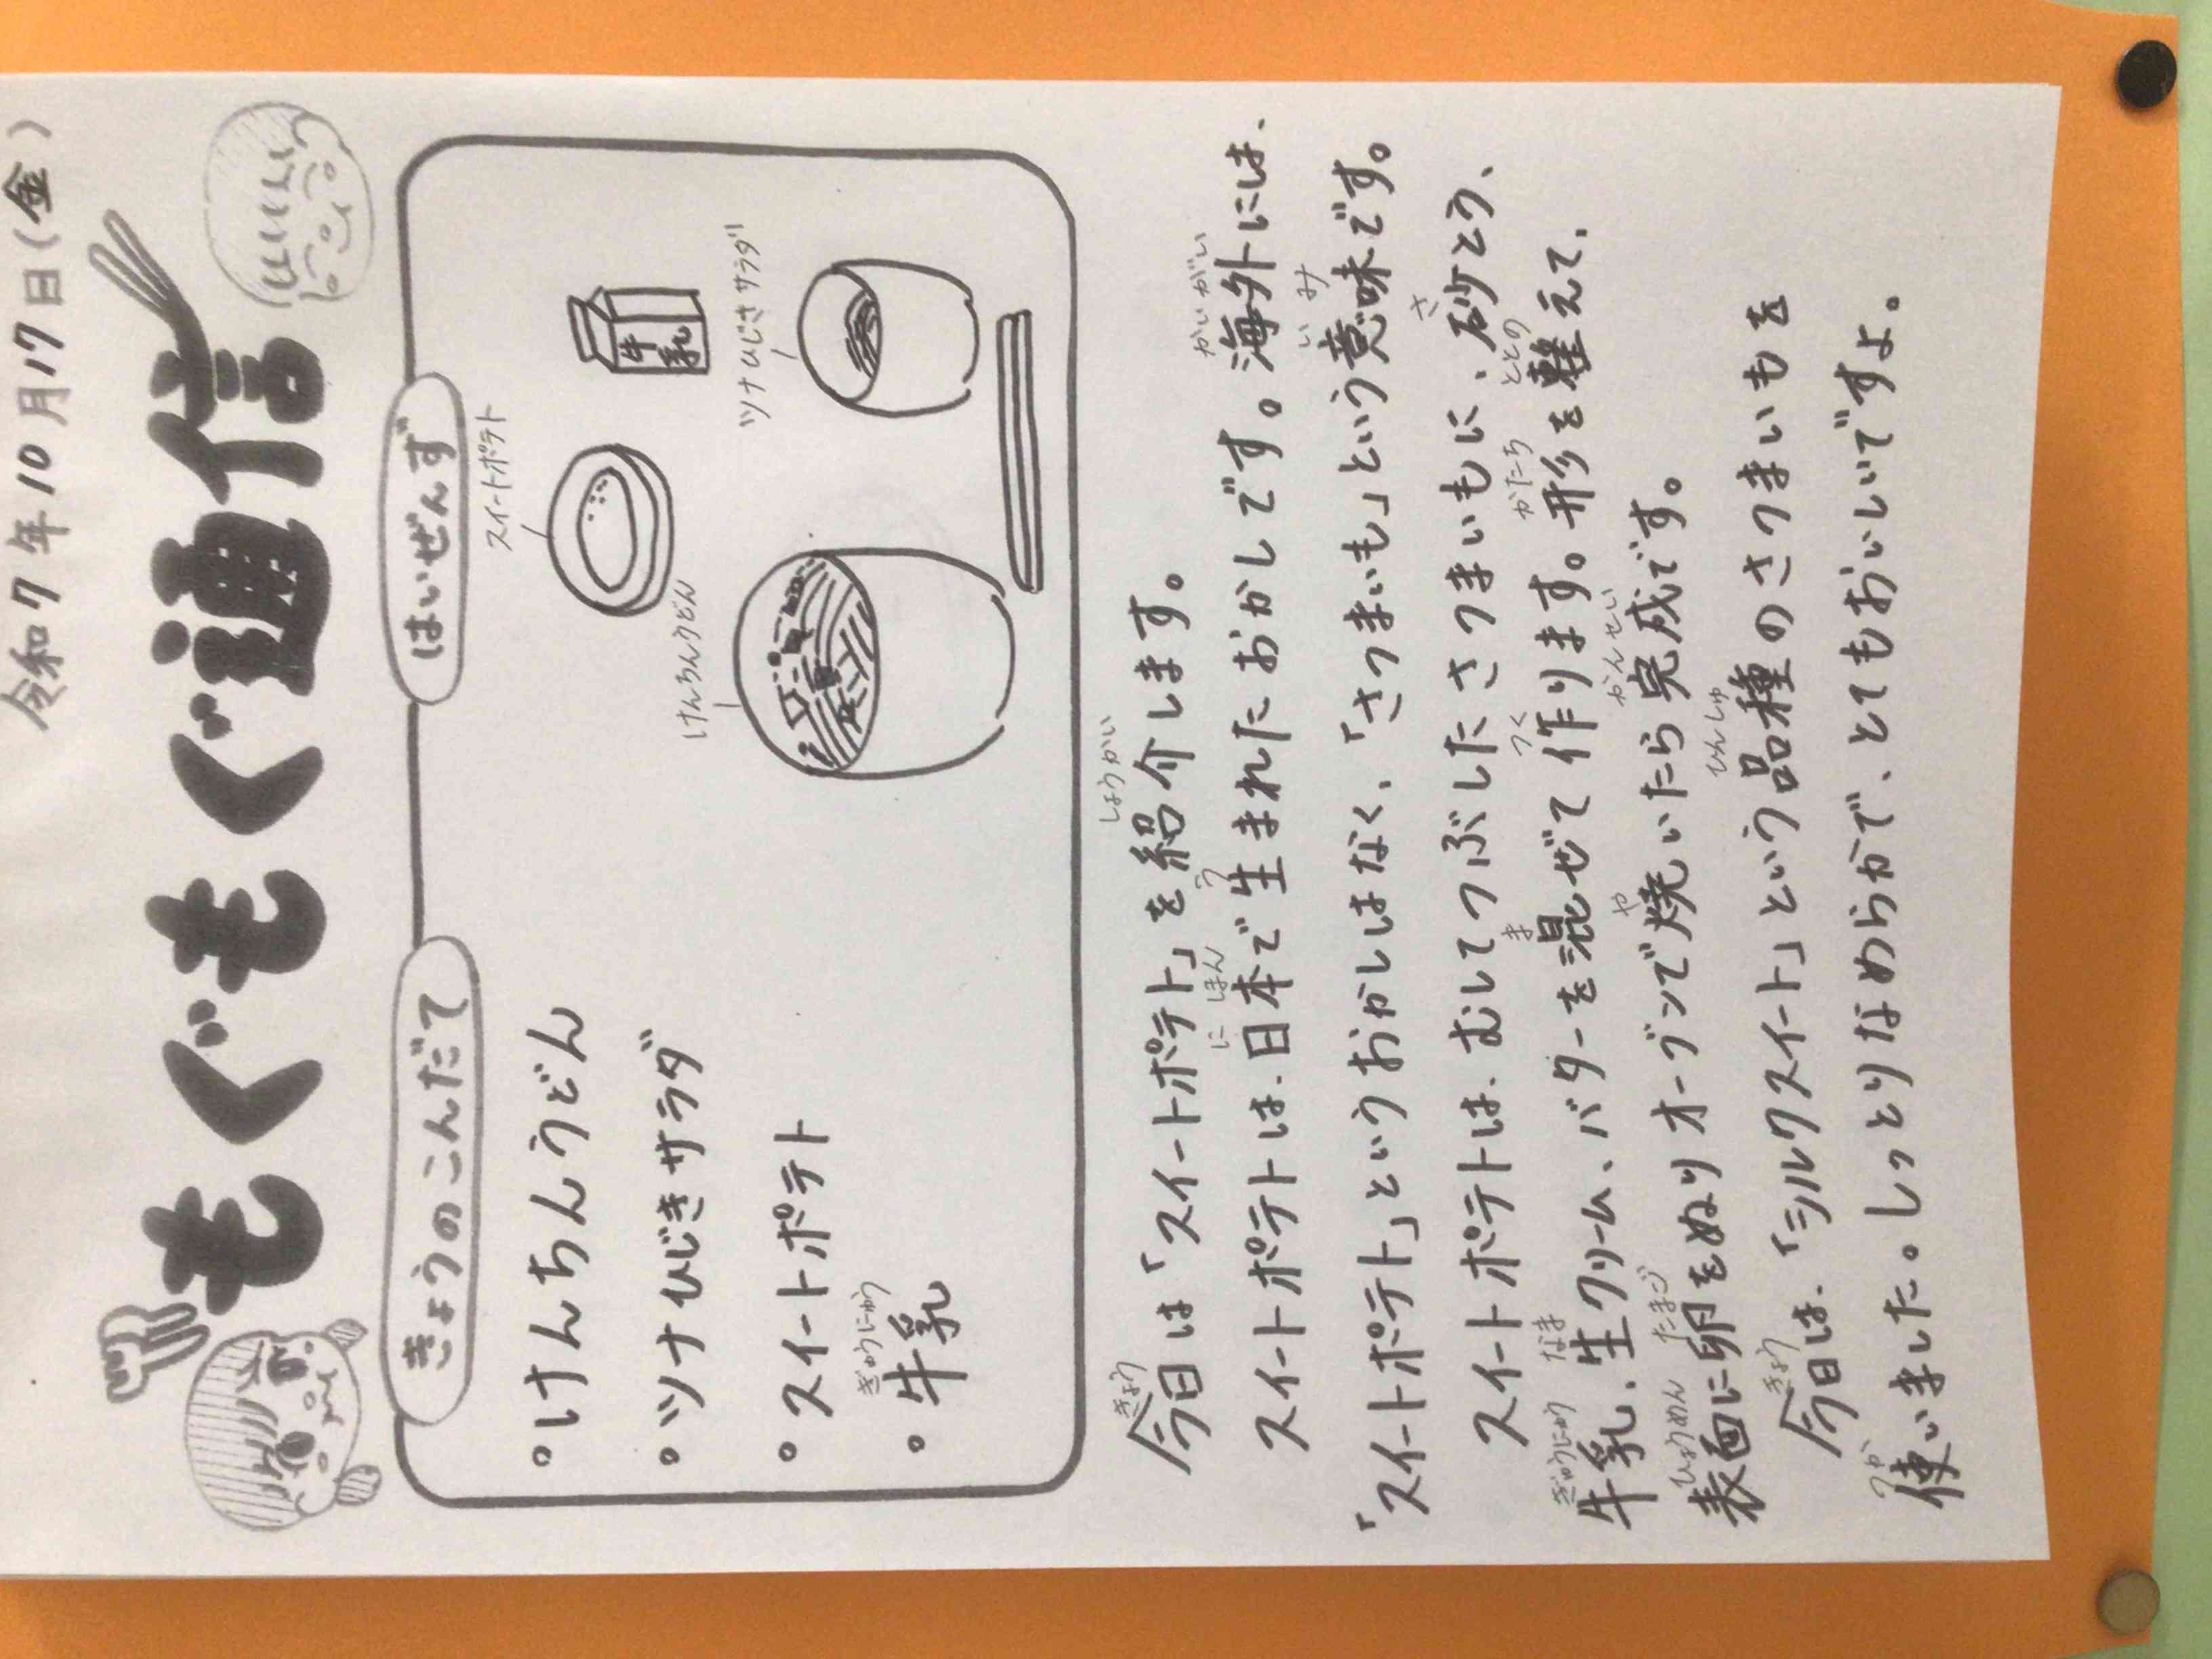 令和7年10月17日(金)
もぐもぐ通信
きょうのこんだて
・けんちんうどん
・ツナひじきサラダ
・スイートポテト
ぎゅうにゅう
・牛乳
はいぜんず
スイートポテト
牛乳
けんちんうどん
ツナひじきサラダ
きょう しょうかい
今日は「スイートポテト」を紹介します。
にほん う かいがい
スイートポテトは、日本で生まれたおかしです。海外には、
いみ
「スイートポテト」というおかしはなく、「さつまいも」という意味です。
さ
スイートポテトは、むしてつぶしたさつまいもに、砂とう、
ぎゅうにゅう なま ま つく かたち ととの
牛乳、生クリーム、バターを混ぜて作ります。形を整えて、
ひょうめん たまご や かんせい
表面に卵をぬりオーブンで焼いたら完成です。
きょう ひんしゅ
今日は、「シルクスイート」という品種のさつまいもを
つか
使いました。しっとりなめらかで、とてもおいしいですよ。